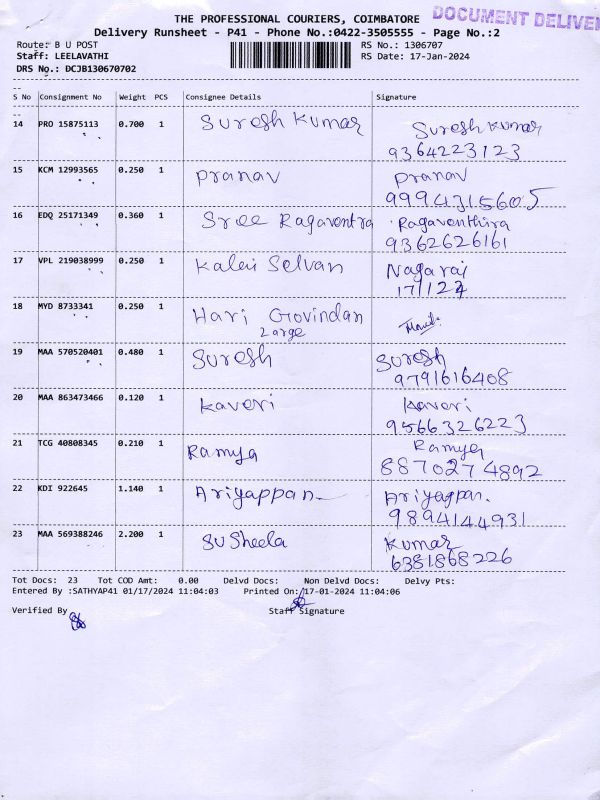 THE PROFESSIONAL COURIERS, COIMBATORE
DOCUMENT DELIVER
Delivery Runsheet - P41 - Phone No.:0422-3505555 - Page No.:2
Route: B U POST
RS No.: 1306707
Staff: LEELAVATHI
RS Date: 17-Jan-2024
DRS No.: DCJB130670702
S No Consignment No Weight PCS Consignee Details Signature
14 PRO 15875113 0.700 1 Suresh Kumar Suresh Kumar
9364223123
15 KCM 12993565 0.250 1 Pranav Pranav
9994315605
16 EDQ 25171349 0.360 1 Sree Ragaventra Ragaventhira
9362626161
17 VPL 219038999 0.250 1 Kalai Selvan Nagaraj
17/1/24
18 MYD 8733341 0.250 1 Hari Govindan
Large
19 MAA 570520401 0.480 1 Suresh Suresh
9791616408
20 MAA 863473466 0.120 1 Kaveri Kaveri
9566326223
21 TCG 40808345 0.210 1 Ramya Ramya
8870274892
22 KDI 922645 1.140 1 Ariyappan Ariyappan.
9894144931
23 MAA 569388246 2.200 1 SuSheela Kumar
6381868226
Tot Docs: 23 Tot COD Amt: 0.00 Delvd Docs: Non Delvd Docs: Delvy Pts:
Entered By :SATHYAP41 01/17/2024 11:04:03 Printed On:17-01-2024 11:04:06
Verified By Staff Signature